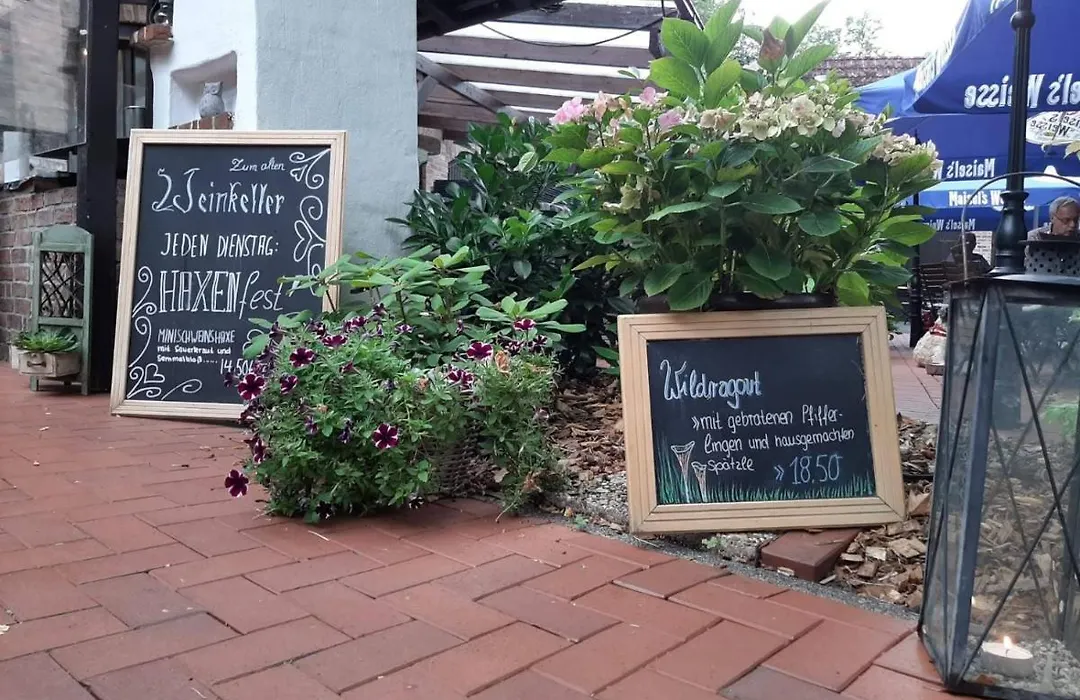 Zum alten
Weinkeller
JEDEN DIENSTAG:
HAXENfest
MINISCHWEINSHAXE
mit Sauerkraut und
Semmelkloß..... 14.50€
Wildragout
»mit gebratenen Pfiffer-
lingen und hausgemachten
Spätzle
» 18.50
Maisel's Weisse
Maisel's
Maisel's W